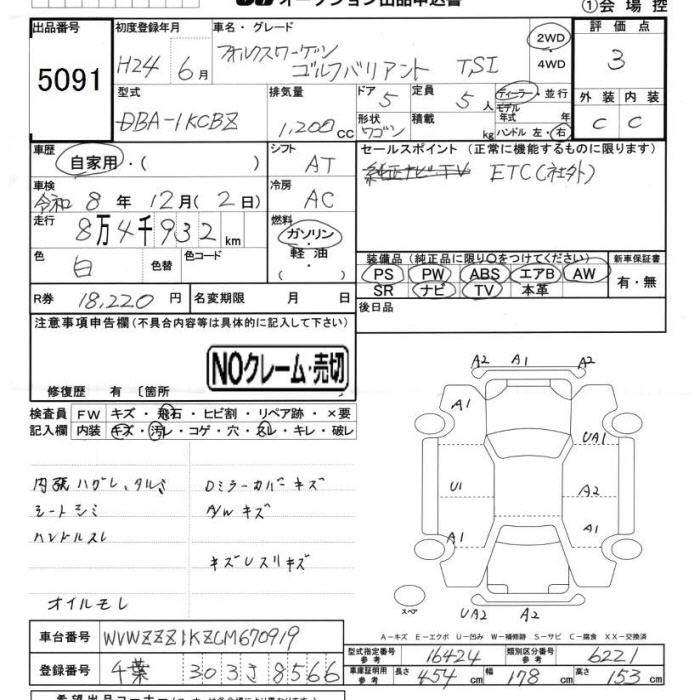 オークション出品申込書 ①会場控
出品番号 5091
初度登録年月 H24 6月
車名・グレード フォルクスワーゲン ゴルフバリアント TSI
2WD・4WD
評価点 3
外装 C 内装 C
型式 DBA-1KCBZ
排気量 1,200cc
ドア 5 形状 ワゴン
定員 5人 積載 kg
ディーラー・並行 モデル年式 年 ハンドル 左・右
車歴 自家用・( )
シフト AT
セールスポイント (正常に機能するものに限ります)
純正ナビ・TV ETC(社外)
車検 令和 8年 12月(2日)
冷房 AC
走行 8万4千932km
燃料 ガソリン・軽油・( )
色 白 色替 色コード
装備品(純正品に限り○をつけてください) 新車保証書
PS PW ABS エアB AW 有・無
SR ナビ TV 本革
R券 18,220円 名変期限 月 日
後日品
注意事項申告欄(不具合内容等は具体的に記入して下さい)
NOクレーム・売切
修復歴 有〔箇所
検査員 FW キズ・飛石・ヒビ割・リペア跡・×要
記入欄 内装 キズ・汚レ・コゲ・穴・スレ・キレ・破レ
A2 A1 A2
A1
UA1
U1
A2
A1 A1
UA2 A2
スペア
内張ハガレ、タルミ Dミラーカバーキズ
シートシミ A/Wキズ
ハンドルスレ
キズUスリキズ
オイルモレ
A-キズ E-エクボ U-凹み W-補修跡 S-サビ C-腐食 XX-交換済
車台番号 WVWZZZ1KZCM670919
型式指定番号 参考 16424 類別区分番号 参考 6221
登録番号 千葉 303 さ 8566
車庫証明用 参考 長さ 454cm 幅 178cm 高さ 153cm
希望出品コーナー